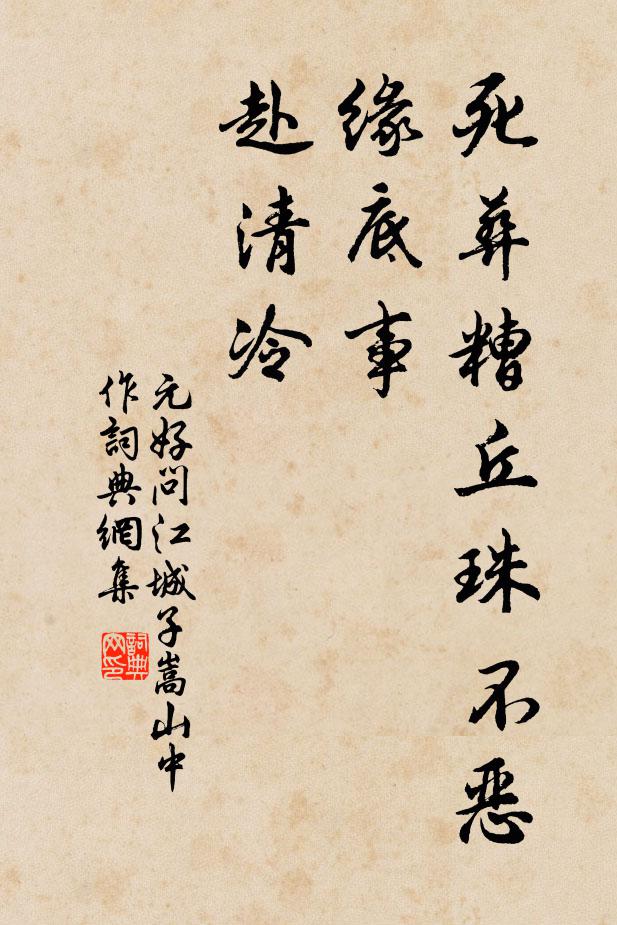 死葬糟丘珠不惡
緣底事
赴清冷
元好問江城子嵩山中
作詞典網集
詞典網印